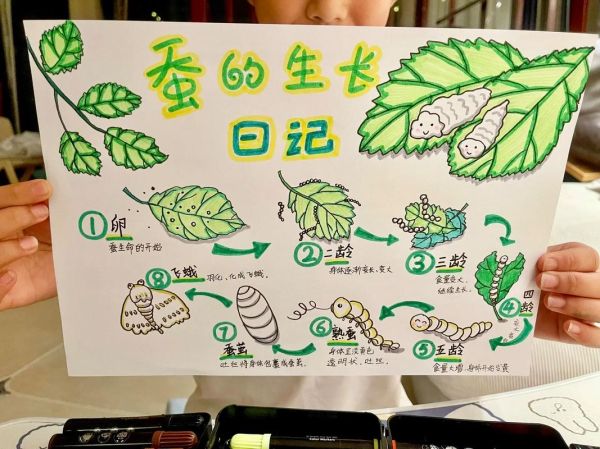 蚕的生长
日记
① 卵
蚕生命的开始
② 二龄
身体逐渐变长、变大
③ 三龄
食量变大,
继续生长。
④ 四龄
⑤ 五龄
食量大增,身体开始变黄
⑥ 熟蚕
身体呈淡黄色
透明状、吐丝。
⑦ 蚕茧
吐丝将身体包裹成蚕茧。
⑧ 飞蛾
羽化,化成飞蛾。